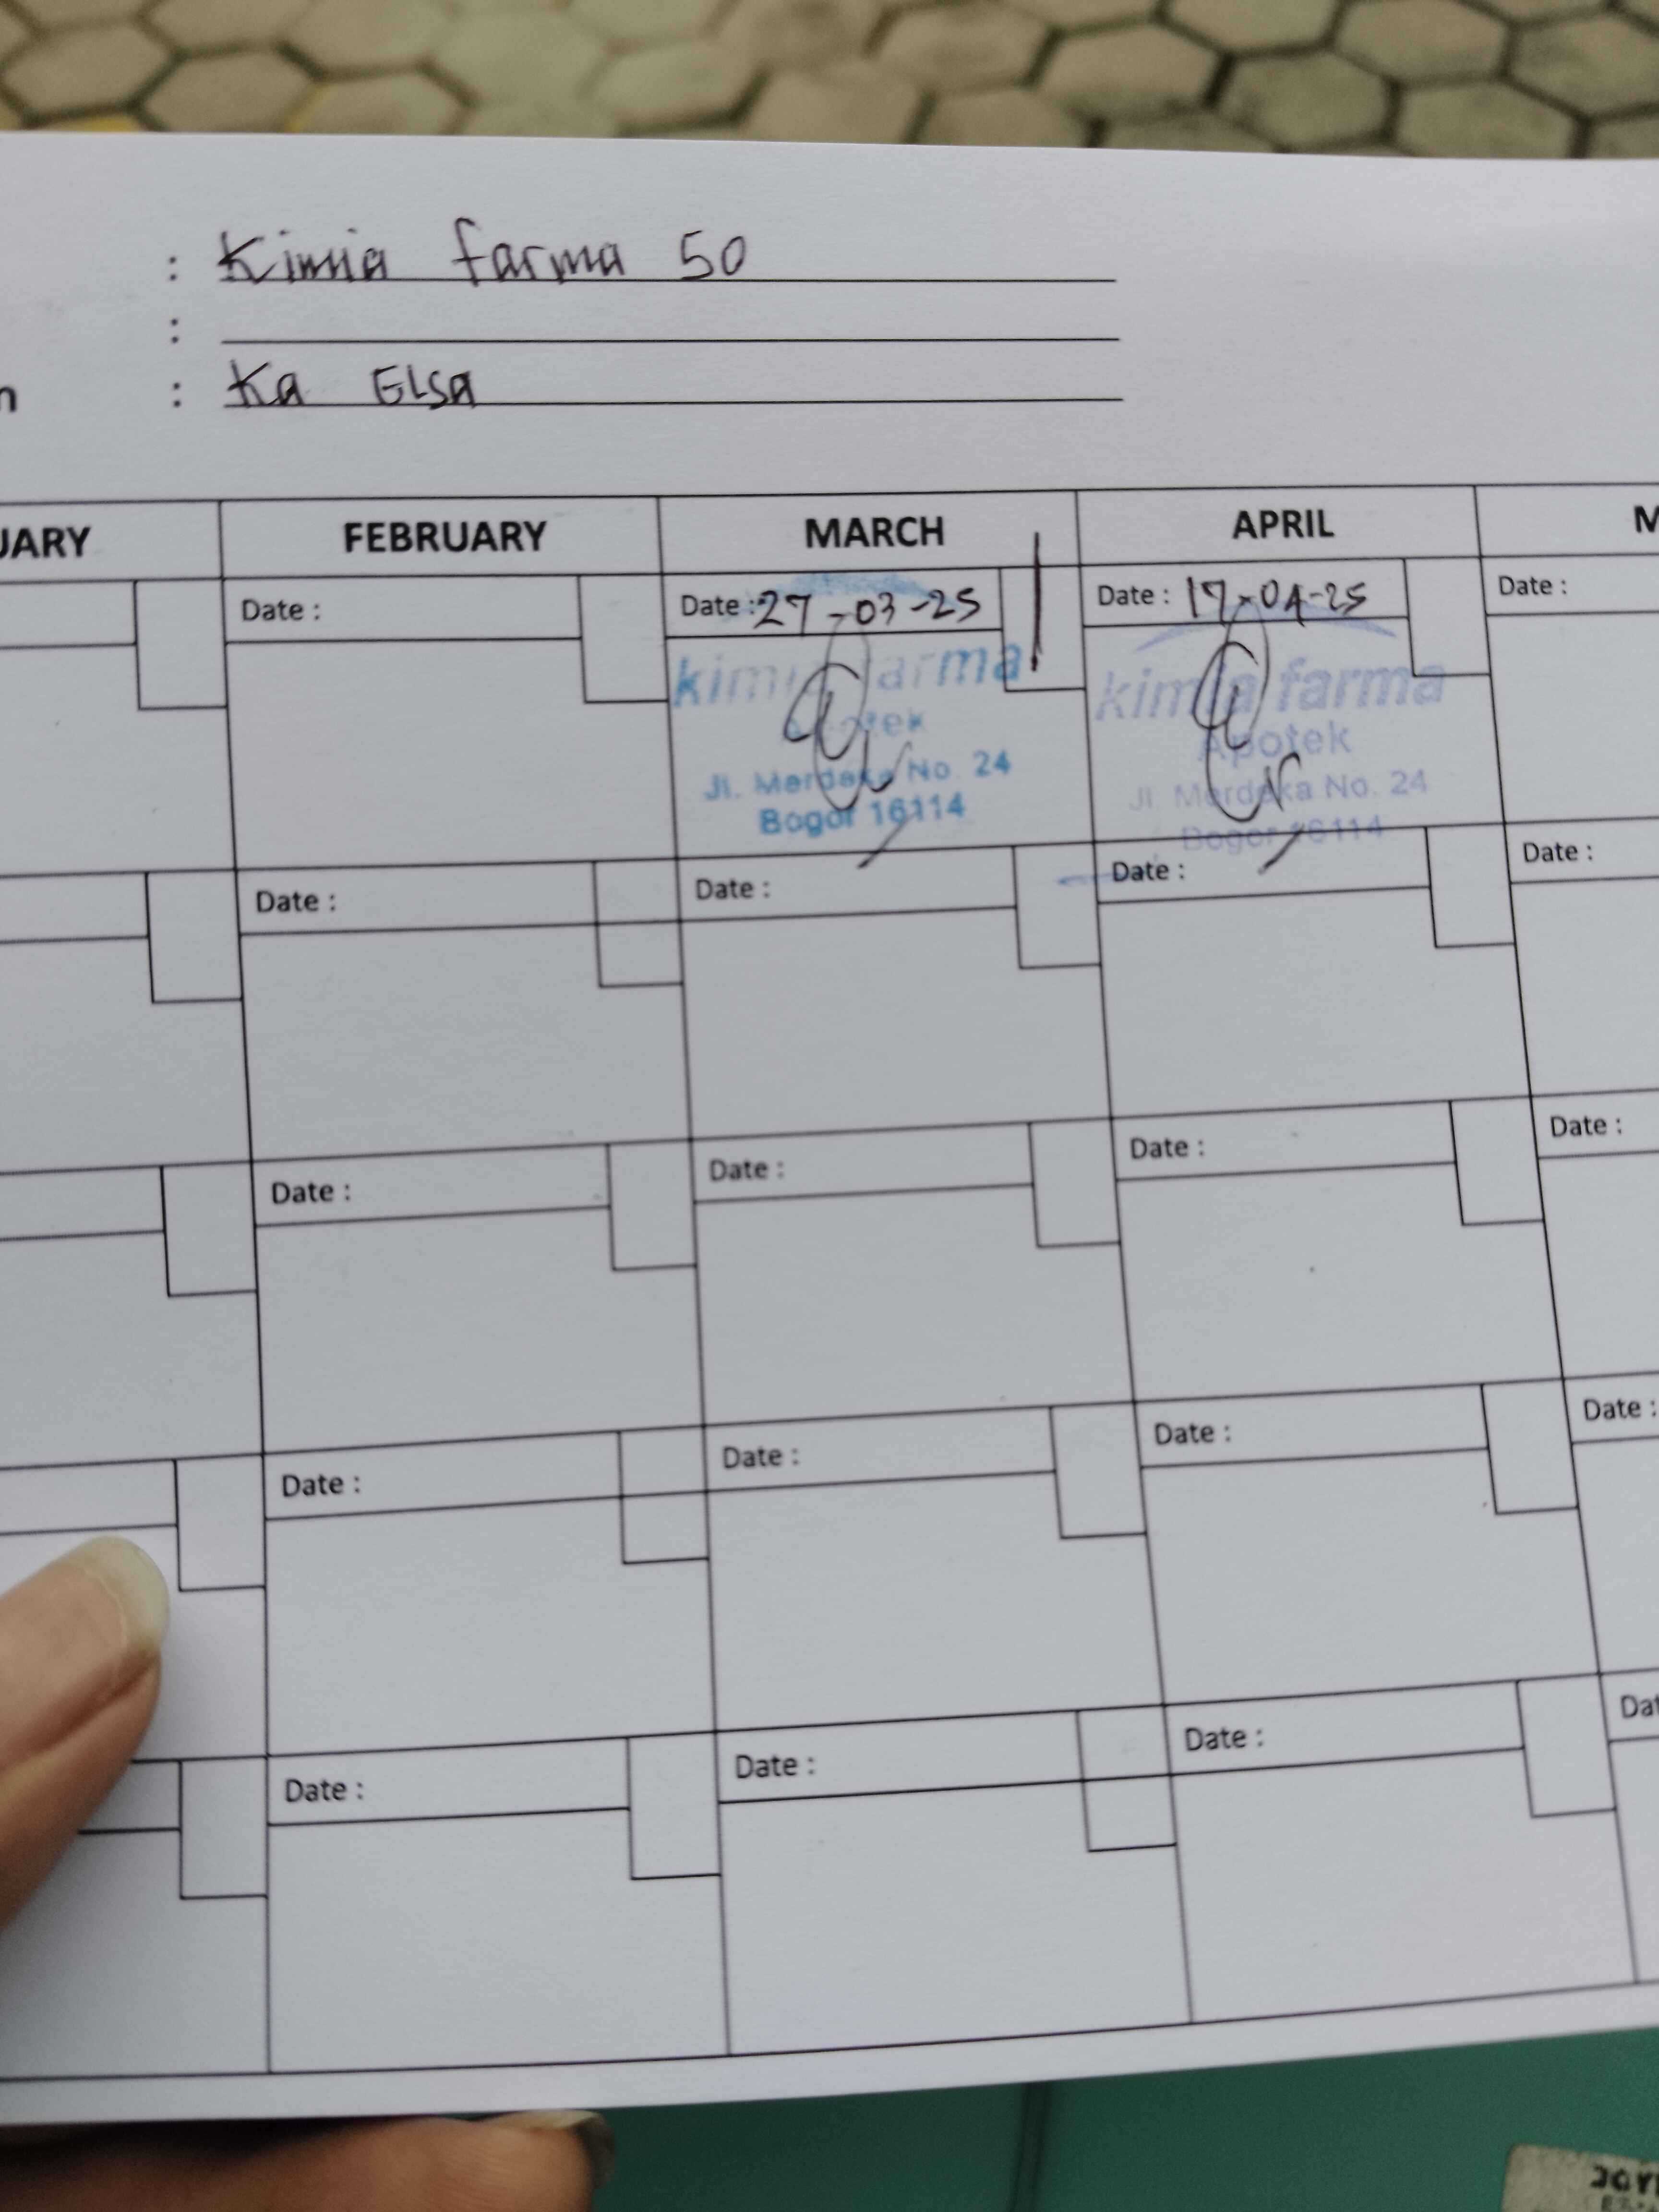 : Kimia farma 50
:
: Ka Elsa
UARY FEBRUARY MARCH APRIL M
Date : Date : 27-03-25 Date : 17-04-25 Date :
kimia farma
Apotek
Jl. Merdeka No. 24
Bogor 16114
kimia farma
Apotek
Jl Merdeka No. 24
Bogor 16114
Date : Date : Date : Date :
Date : Date : Date : Date :
Date : Date : Date : Date :
Date : Date : Date : Dat